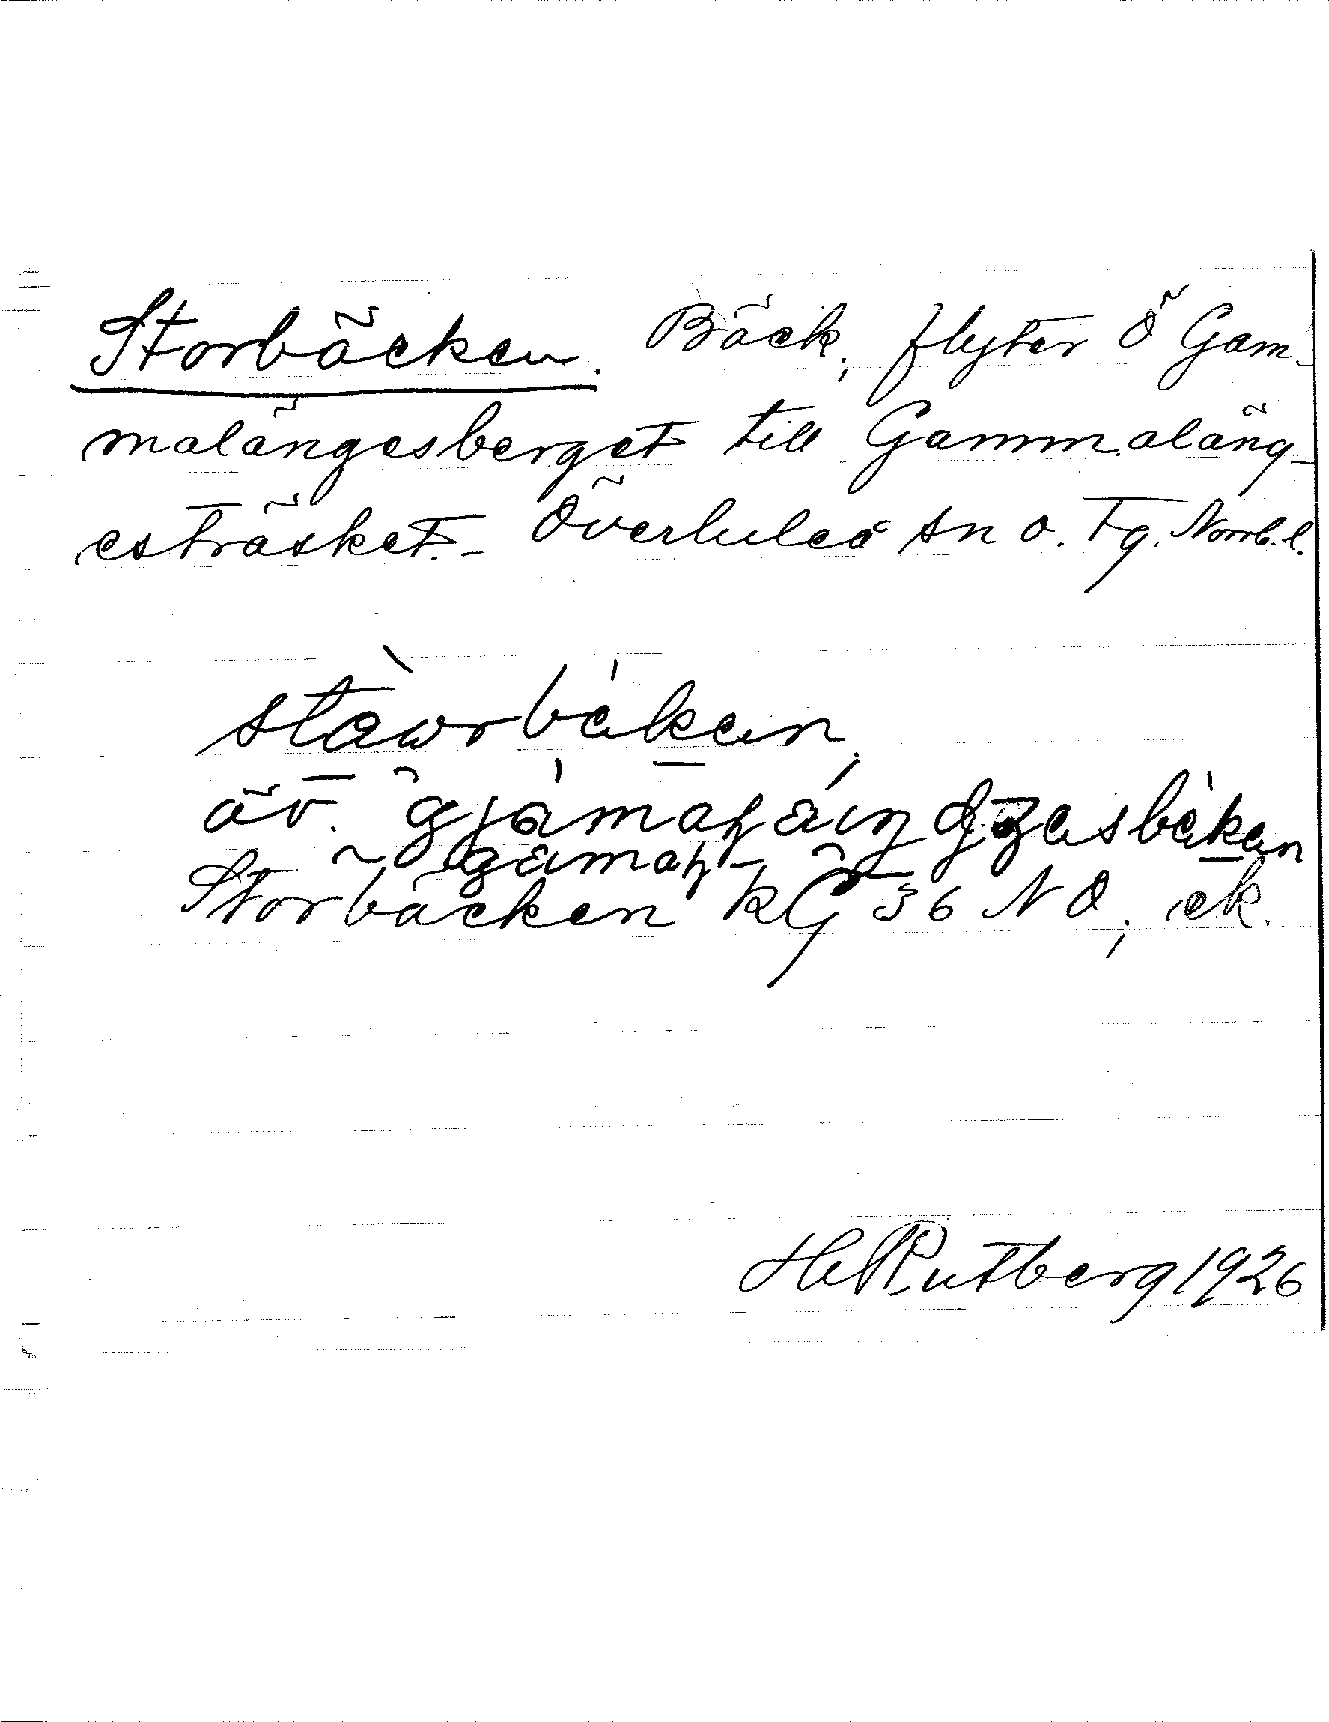 Storbäcken. Bäck, flyter Ö Gam-
malängesberget till Gammaläng-
esträsket. - Överluleå sn o. Tg. Norrb. l.
stàwrbäken,
äv.
Storbäcken kG 36 NO, ek.
H Rutberg 1926